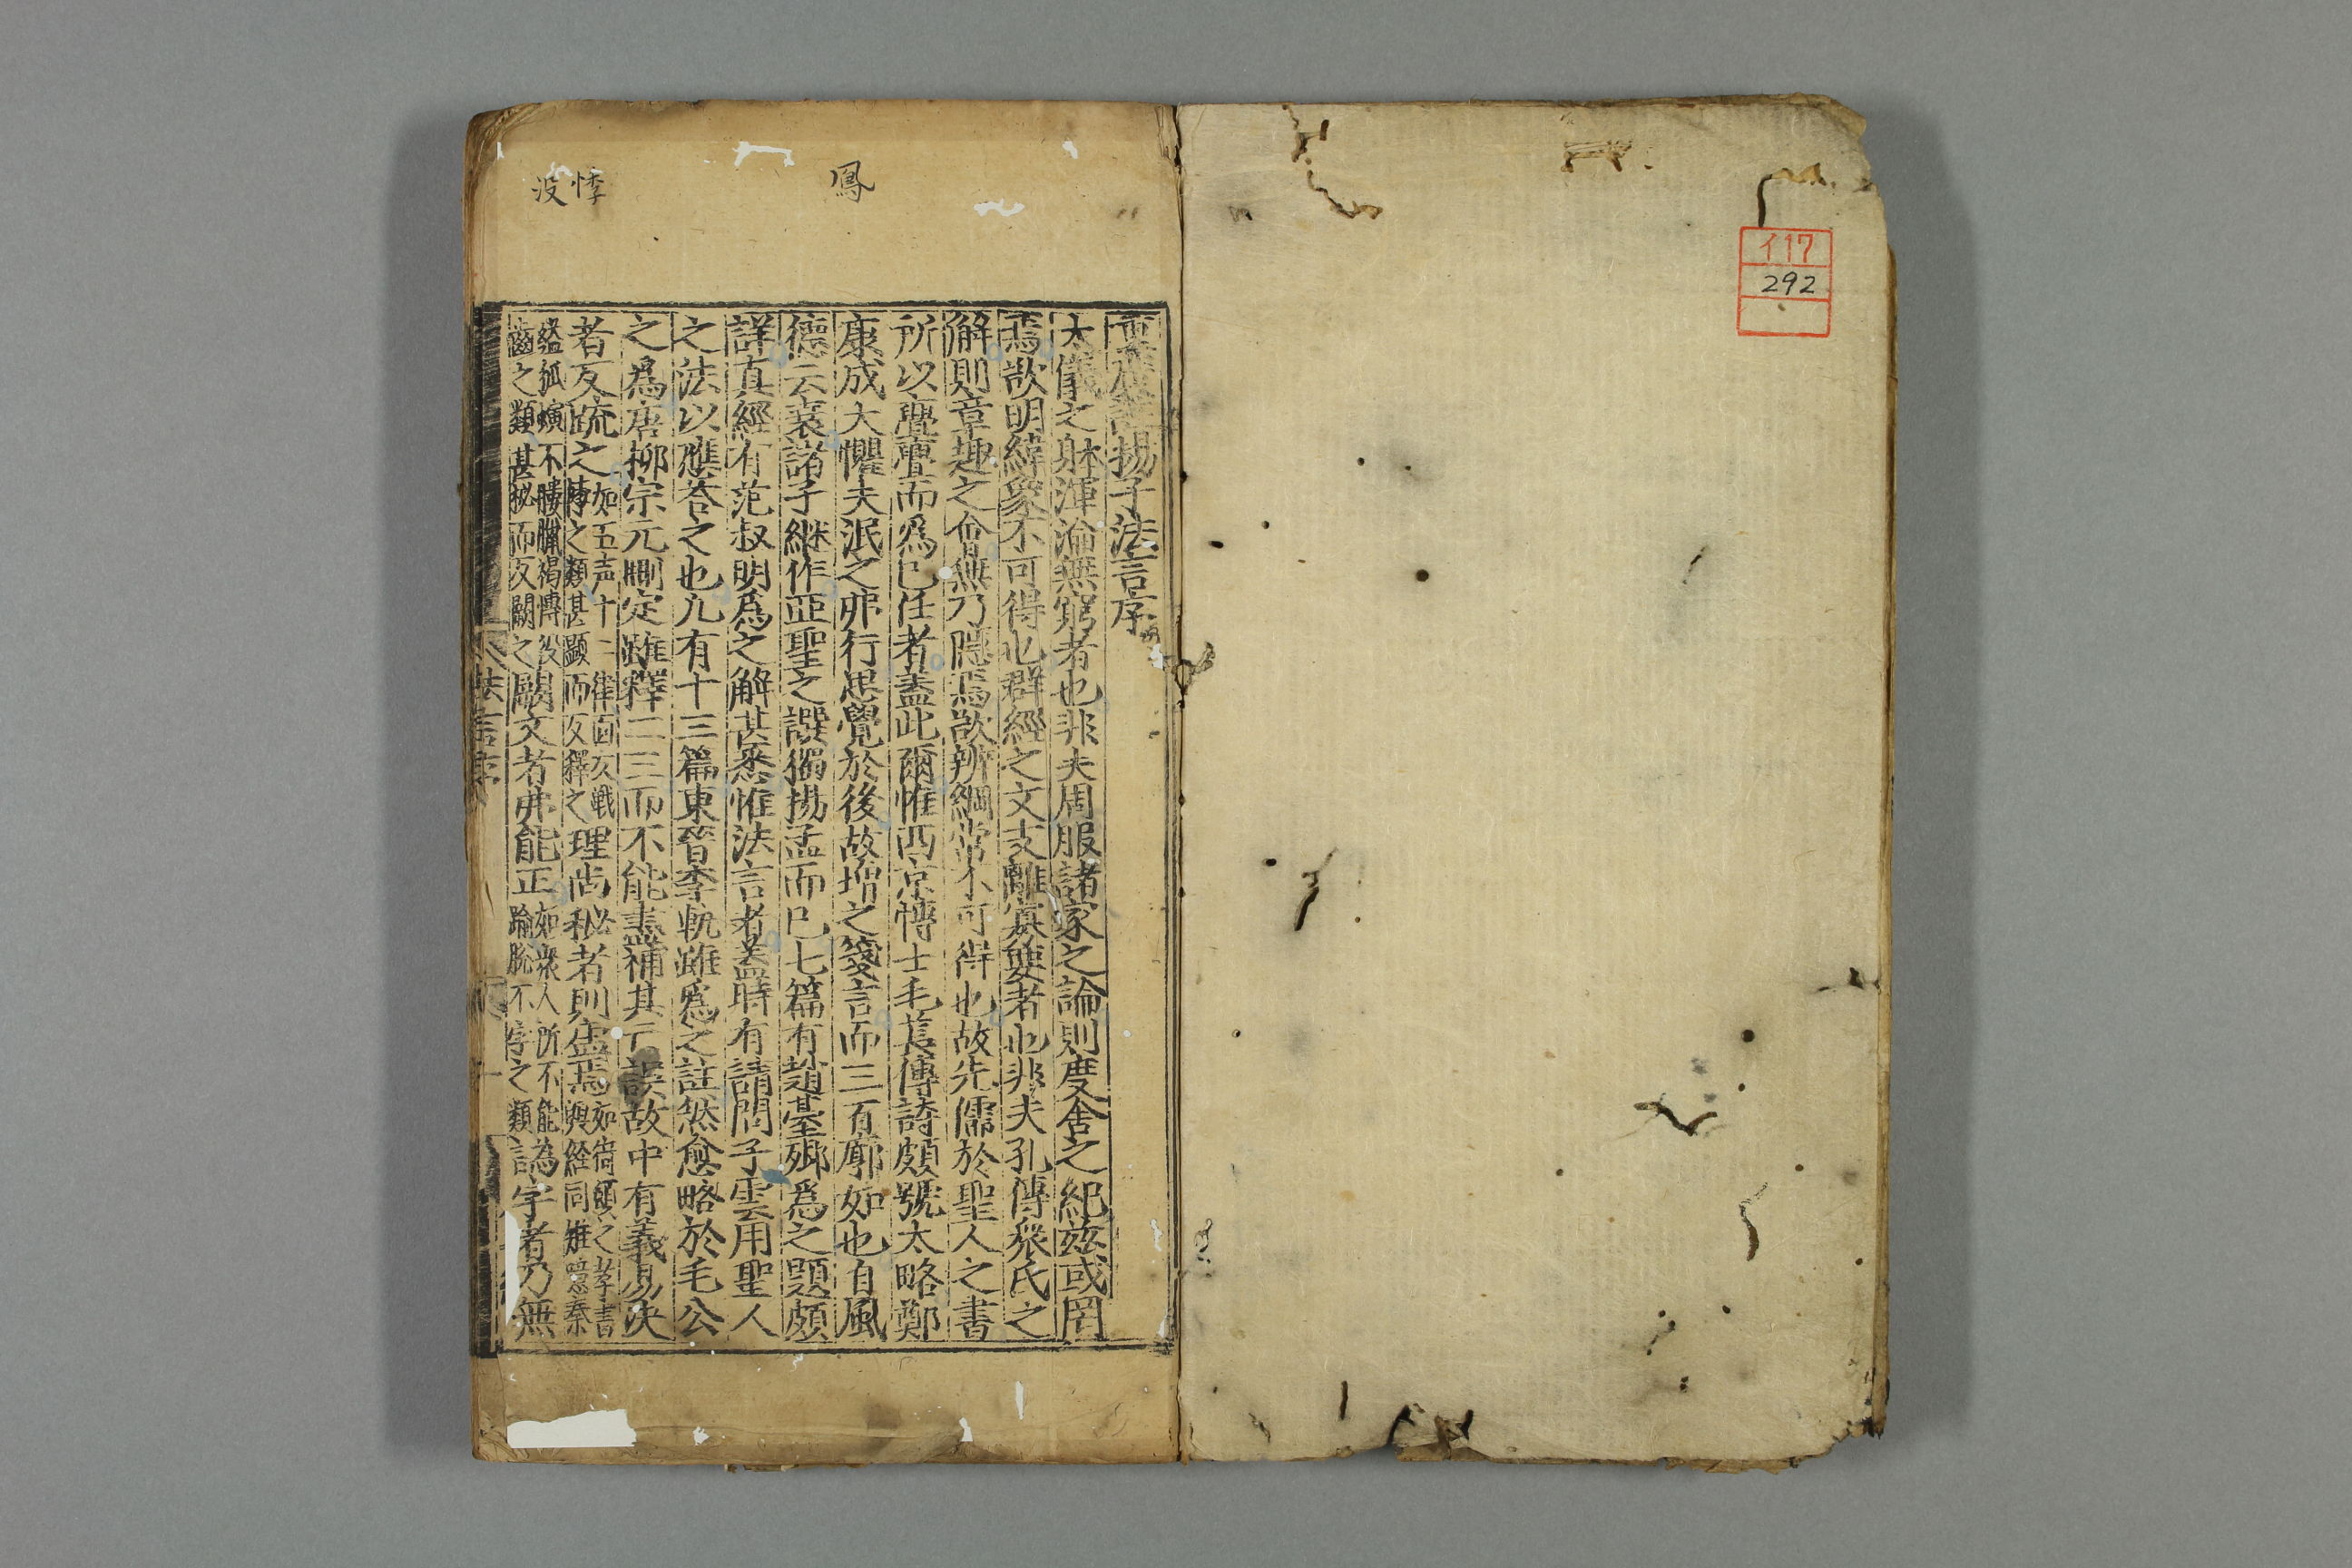 イ17
292
鳳
悸
没
重廣註揚子法言序
大儀之躰渾淪無窮者也非夫周服諸家之論則度舍之紀玆或罔
焉欲明緯象不可得也群經之文支離寡要者也非夫孔傳衆氏之
解則章趣之會無乃隱焉欲辨綱常不可得也故先儒於聖人之書
所以亹亹而爲已任者盖此爾惟西京博士毛萇傳詩頗號太略鄭
康成大懼夫泯之弗行思覺於後故增之箋言而三百廓如也自風
德云衰諸子継作亞聖之譔獨揚孟而已七篇有趙臺卿爲之題頗
詳真經有范叔明爲之解甚悉惟法言者盖時有請問子雲用聖人
之法以應荅之也凢有十三篇東晉李軌雖爲之註然愈略於毛公
之爲唐柳宗元刪定雖釋二三而不能盡補其亡誤故中有義易决
者反疏之如五声十二律
之類甚顯而反釋之理尚秘者則虛焉
之類甚秘而反闕之闕文者弗能正如衆人所不能
之類譌字者乃無
法言序
一